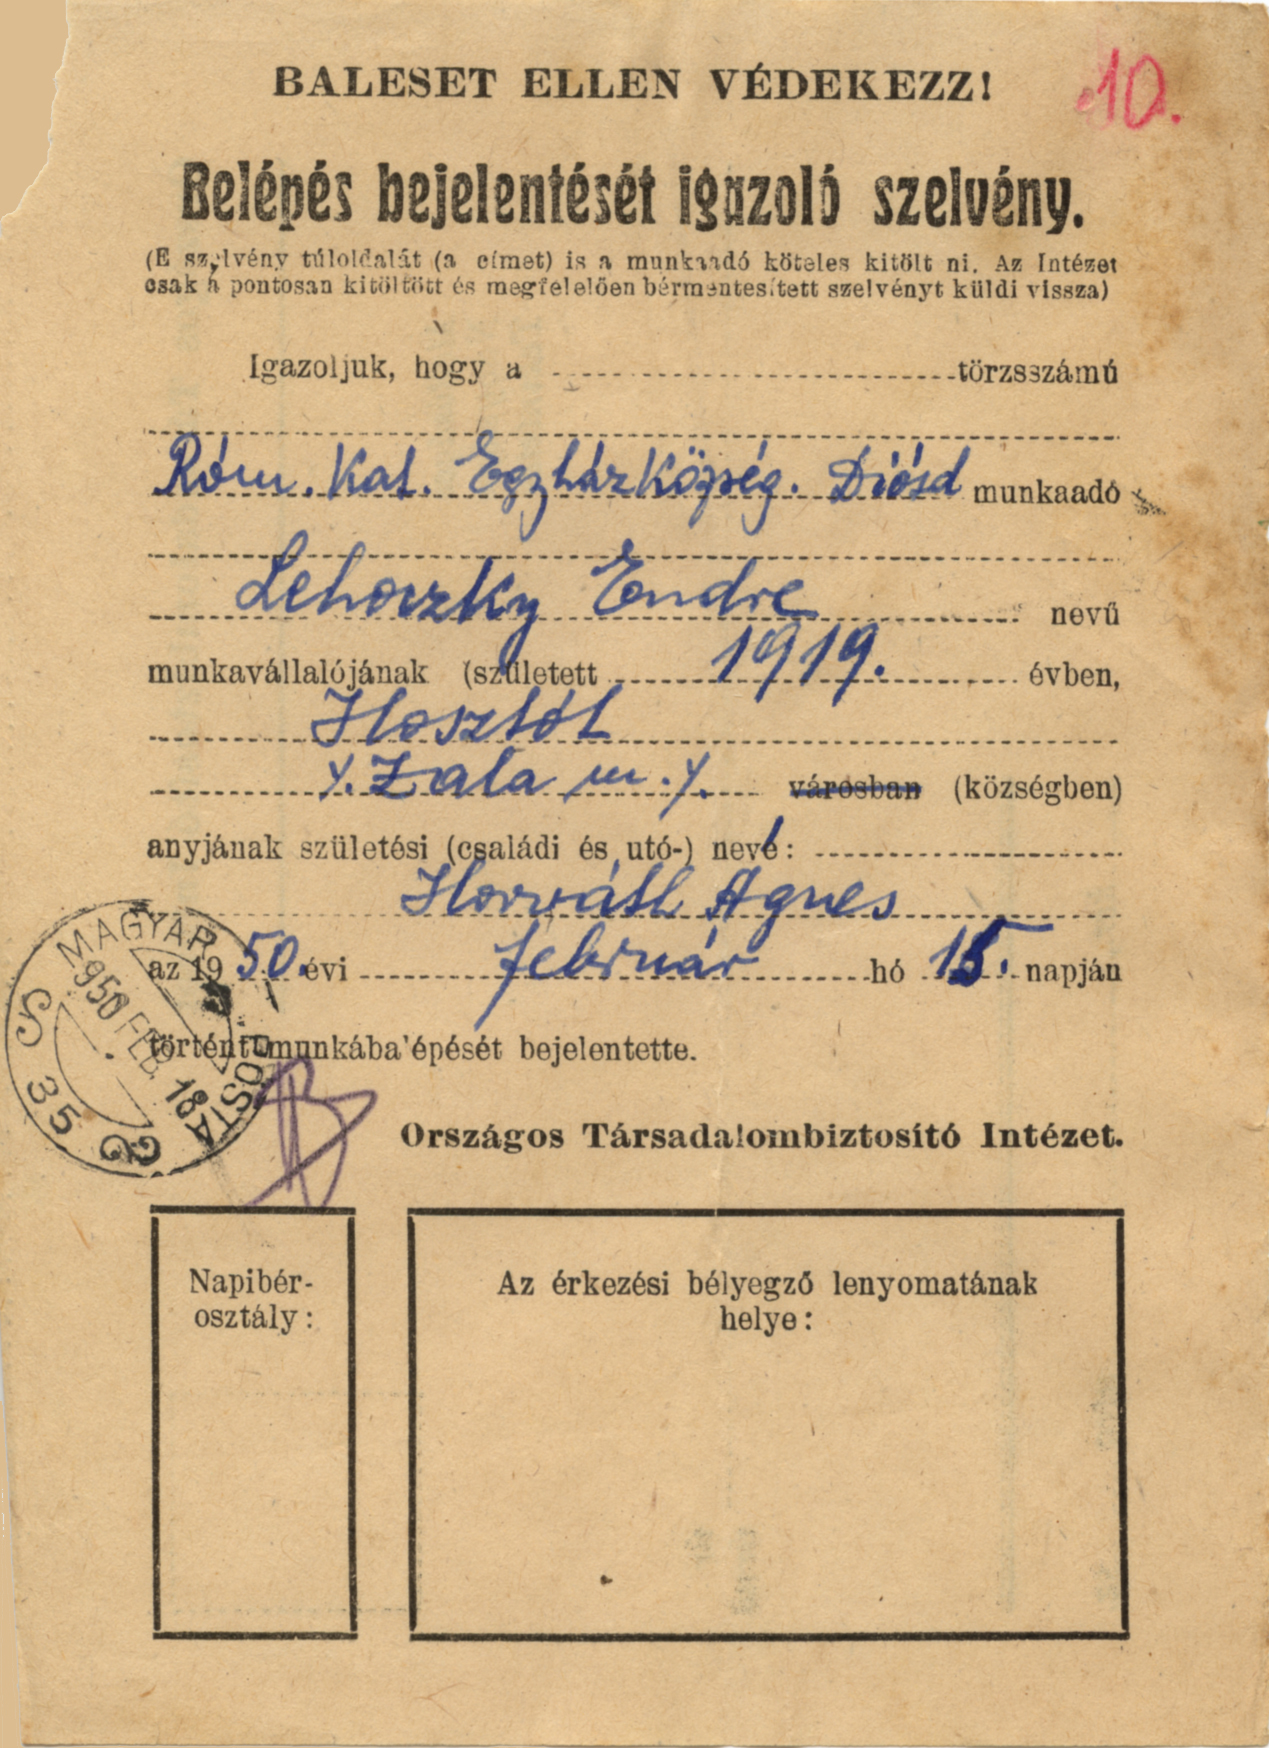 10.
BALESET ELLEN VÉDEKEZZ!
Belépés bejelentését igazoló szelvény.
(E szelvény túloldalát (a címet) is a munkaadó köteles kitölt ni. Az Intézet
csak a pontosan kitöltött és megfelelően bérmentesített szelvényt küldi vissza)
Igazoljuk, hogy a törzsszámú
Róm. Kat. Egyházközség. Diósd munkaadó
Lehoczky Endre nevű
munkavállalójának (született 1919. évben,
Hosztót
/. Zala m. /. városban (községben)
anyjának születési (családi és utó-) neve:
Horváth Ágnes
az 1950. évi február hó 15. napján
történt munkába'épését bejelentette.
MAGYAR POSTA
950 FEB. 18
35
Országos Társadalombiztosító Intézet.
Napibér-
osztály:
Az érkezési bélyegző lenyomatának
helye: